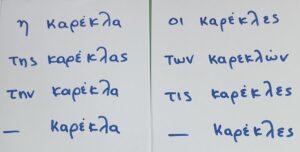 η καρέκλα
της καρέκλας
την καρέκλα
— καρέκλα
οι καρέκλες
των καρεκλών
τις καρέκλες
— καρέκλες